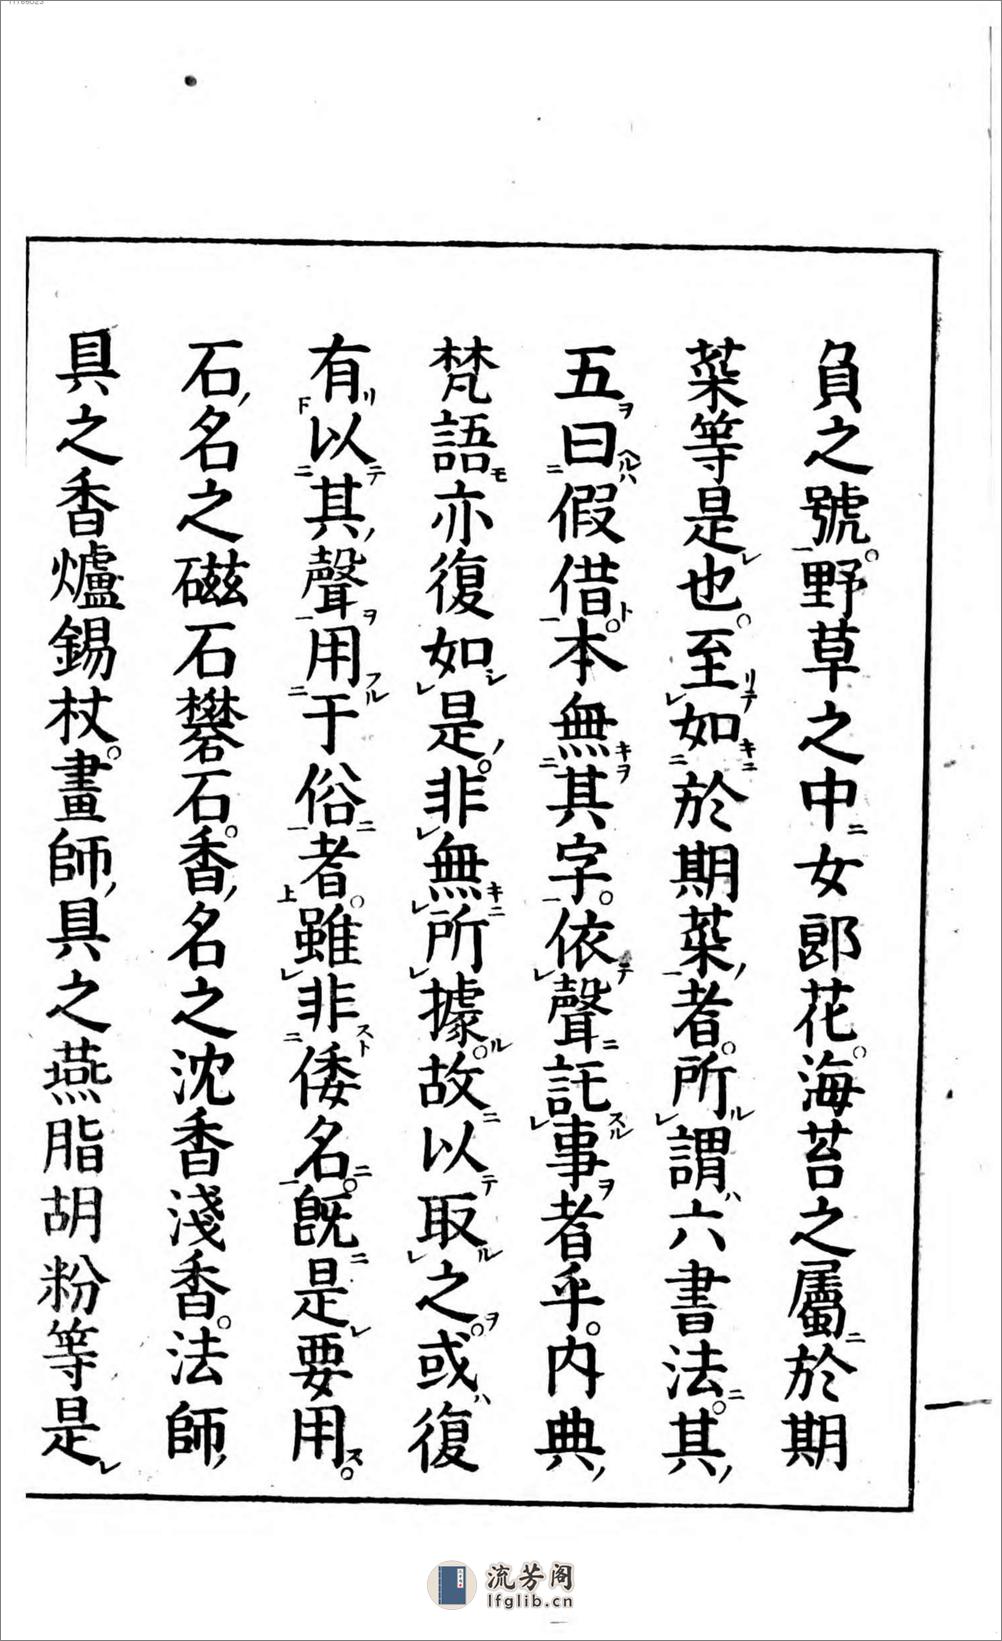 負之號野草之中女郎花海苔之屬於期
菜等是也至如於期菜者所謂六書法其
五曰假借本無其字依聲託事者乎内典
梵語亦復如是非無所據故以取之或復
有以其聲用于俗者雖非倭名既是要用
石名之磁石礬石香名之沈香淺香法師
具之香爐錫杖畫師具之燕脂胡粉等是
流芳阁
lfglib.cn